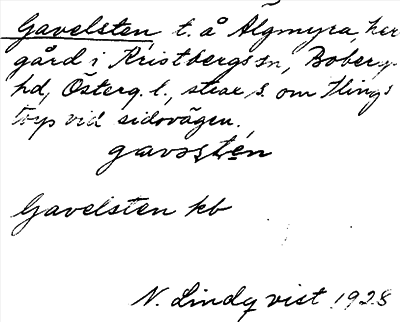 Gavelsten t. å Älgmyra, her
gård i Kristbergs sn, Boberg
hd, Österg. l., strax s. om Flings
torp vid sidovägen.
gavəstén
Gavelsten kb
N. Lindqvist 1928